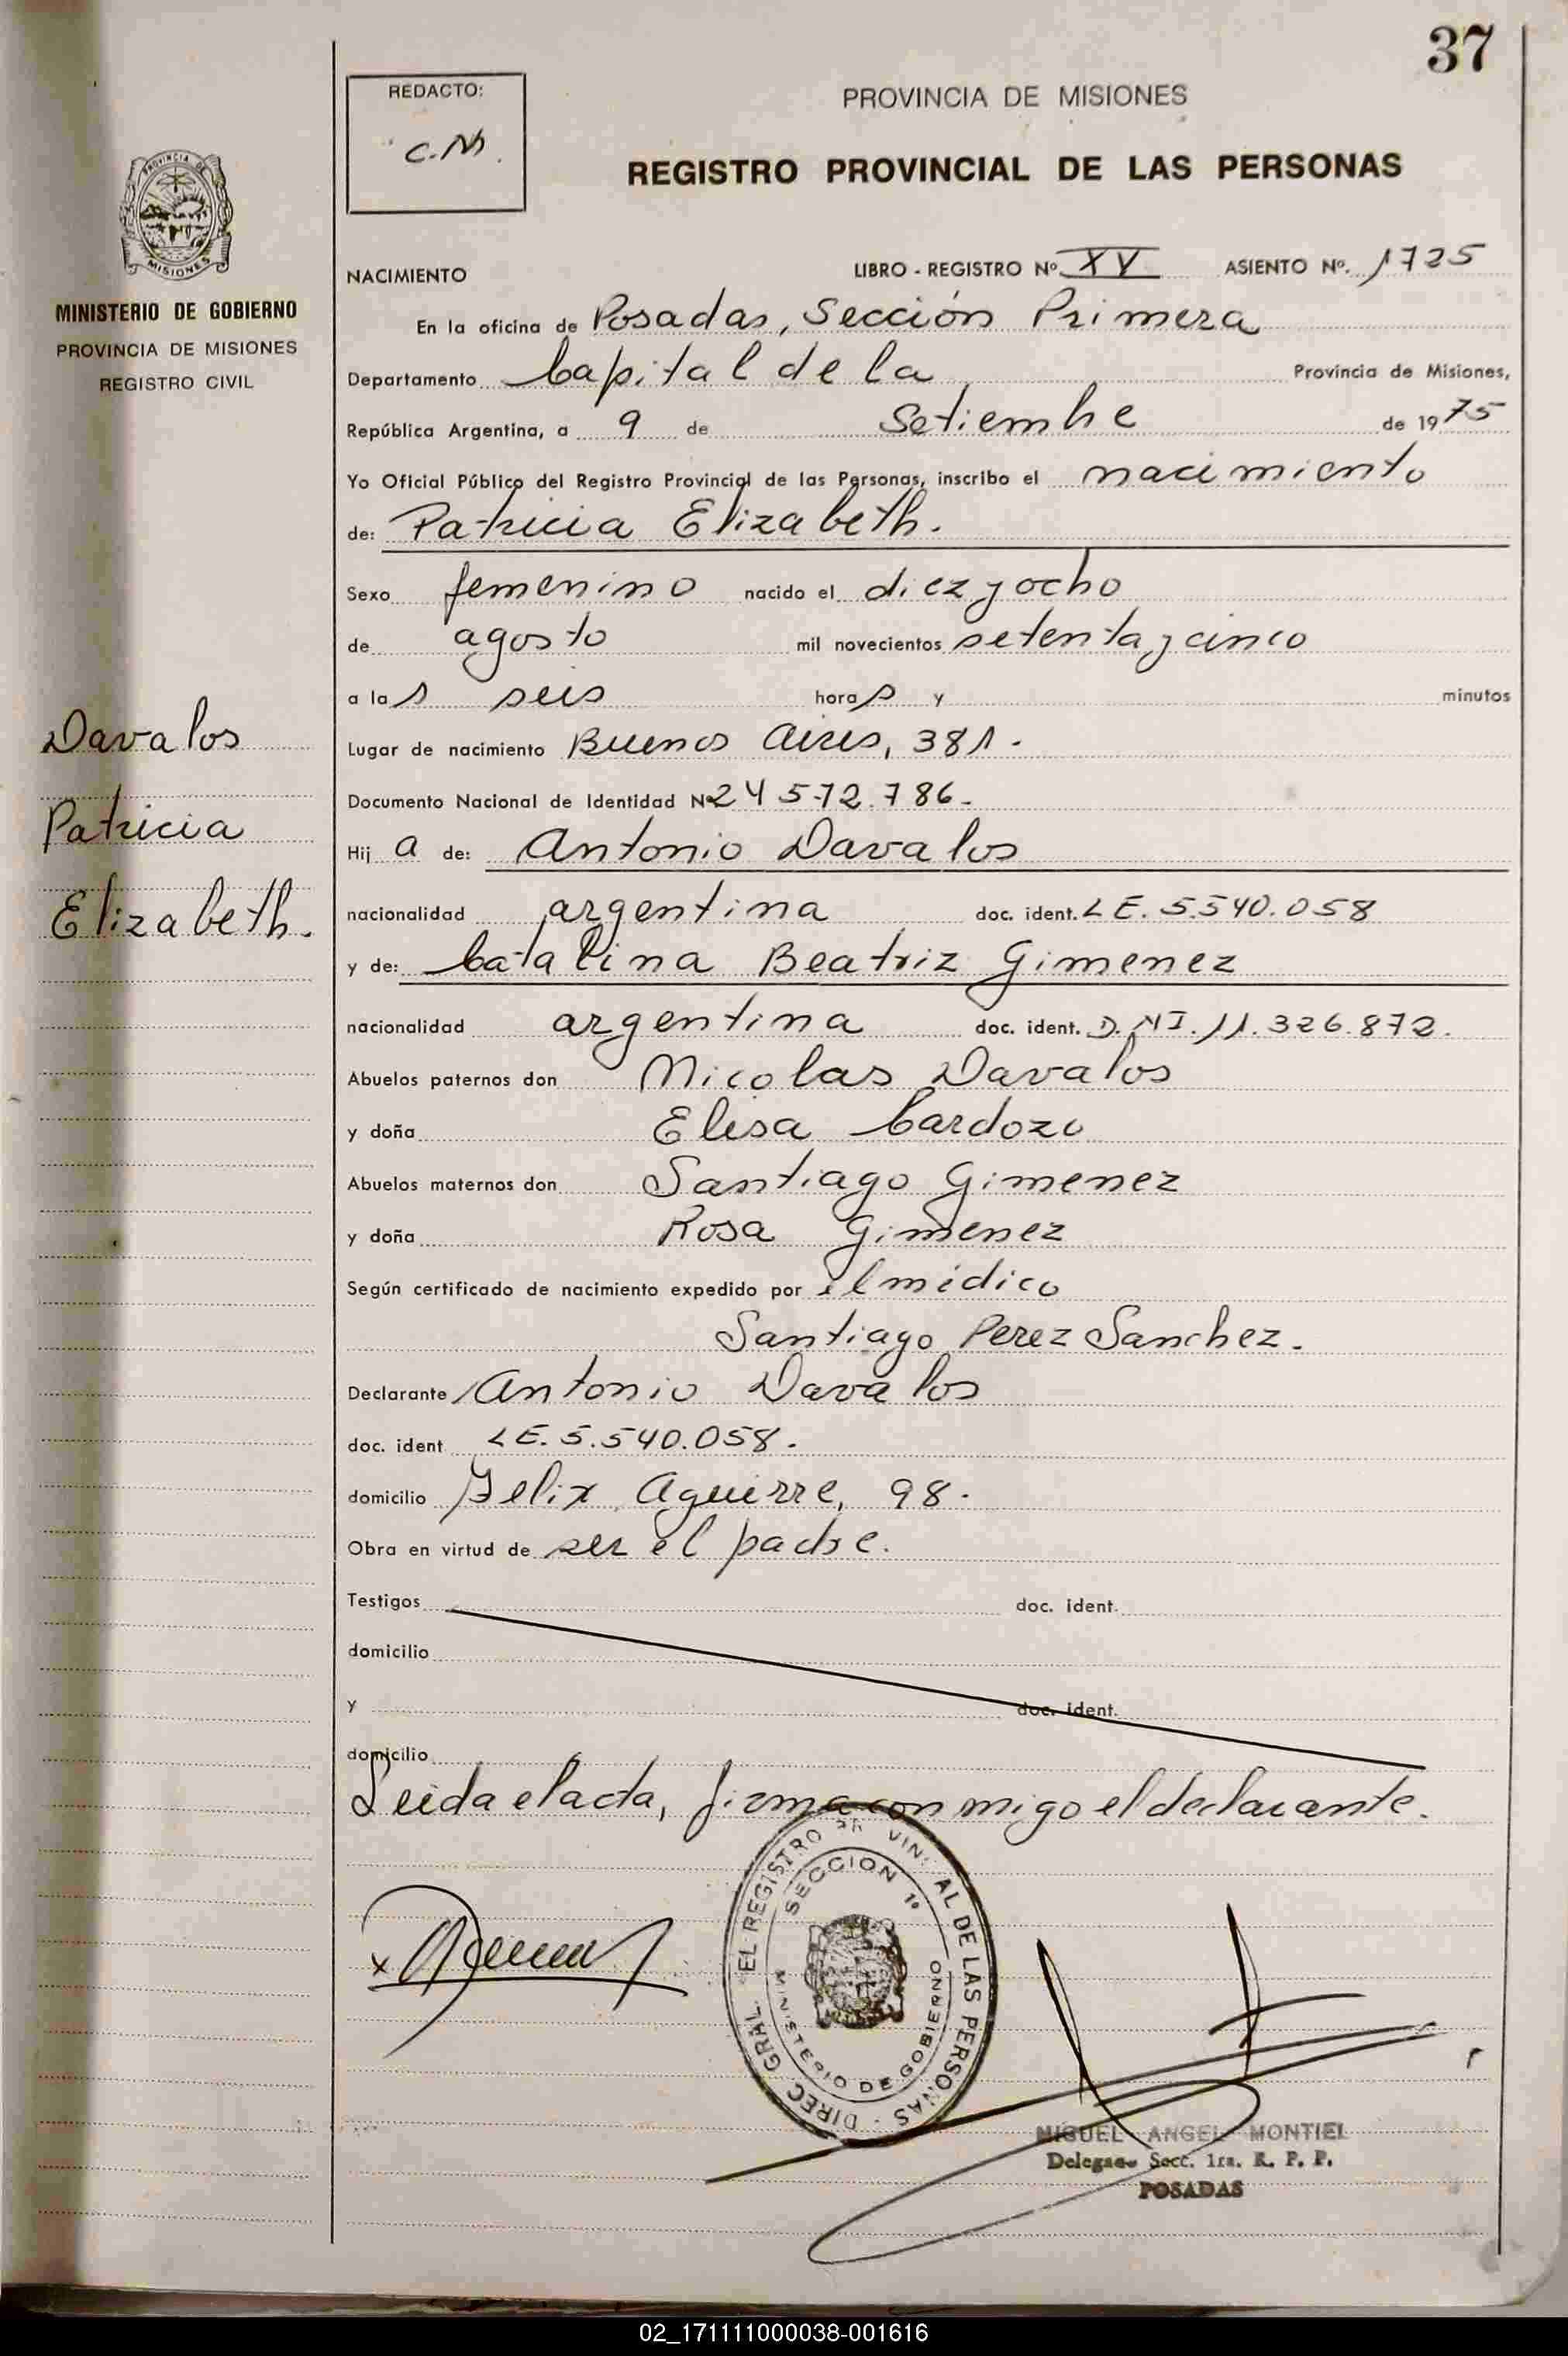 37
REDACTO:
C.M.
PROVINCIA DE MISIONES
REGISTRO PROVINCIAL DE LAS PERSONAS
MISIONES
MINISTERIO DE GOBIERNO
PROVINCIA DE MISIONES
REGISTRO CIVIL
NACIMIENTO LIBRO - REGISTRO Nº XV ASIENTO Nº. 1725
En la oficina de Posadas, Sección Primera
Departamento Capital de la Provincia de Misiones,
República Argentina, a 9 de Setiembre de 1975
Yo Oficial Público del Registro Provincial de las Personas, inscribo el nacimiento
de: Patricia Elizabeth.
Sexo femenino nacido el diez y ocho
de agosto mil novecientos setenta y cinco
a las seis horas y minutos
Lugar de nacimiento Buenos Aires, 381.
Documento Nacional de Identidad Nº 24 572.786.
Hija de: Antonio Davalos
nacionalidad argentina doc. ident. LE. 5.540.058
y de: Catalina Beatriz Gimenez
nacionalidad argentina doc. ident. D.NI. 11.326.872.
Abuelos paternos don Nicolas Davalos
y doña Elisa Cardozo
Abuelos maternos don Santiago Gimenez
y doña Rosa Gimenez
Según certificado de nacimiento expedido por el médico
Santiago Perez Sanchez.
Declarante Antonio Davalos
doc. ident LE. 5.540.058.
domicilio Felix Aguirre, 98.
Obra en virtud de ser el padre.
Testigos doc. ident.
domicilio
y doc. ident.
domicilio
Leida el acta, firma conmigo el declarante.
Davalos
Patricia
Elizabeth.
SECCION 1º
MINISTERIO DE GOBIERNO
MIGUEL ANGEL MONTIEL
Secc. 1ra. R. P. P.
POSADAS
02_171111000038-001616